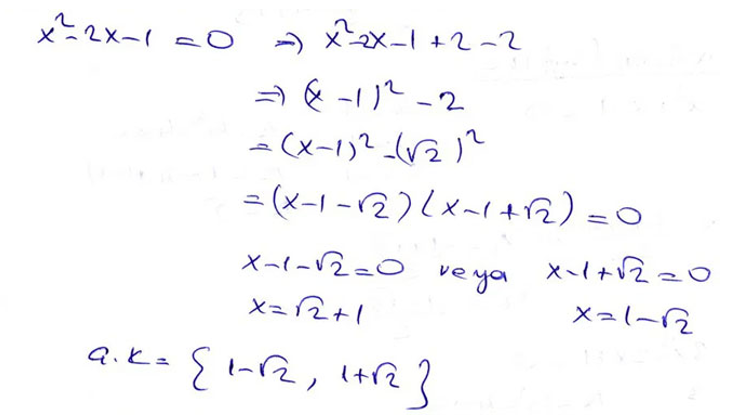 x²-2x-1 = 0 ⇒ x²-2x-1+2-2
⇒ (x-1)² - 2
= (x-1)² - (√2)²
= (x-1-√2)(x-1+√2) = 0
x-1-√2=0 veya x-1+√2=0
x=√2+1 x=1-√2
a.k= { 1-√2, 1+√2 }